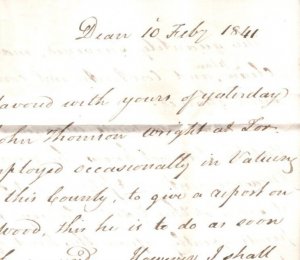 Dean 10 Feby 1841
favored with yours of yesterday
John Thomson Wright at
employed occasionally in Valuing
this County, to give a report on
wood, this he is to do as soon
I shall